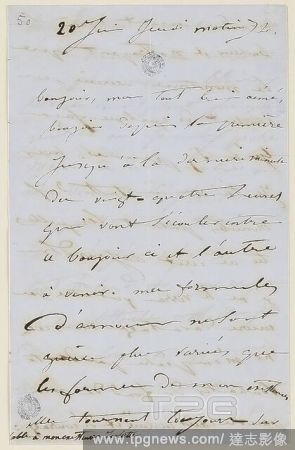 50
20 Juin Jeudi matin
bonjour, mon tout bien aimé,
bonjour depuis la première
jusqu'à la dernière minute
des vingt-quatre heures
qui vont s'écouler entre
ce bonjour ci et l'autre
à venir. mes formules
d'amour ne sont
guère plus variées que
les formes de mon
elles tournent toujours sur
TPG
www.tpgnews.com/ 達志影像